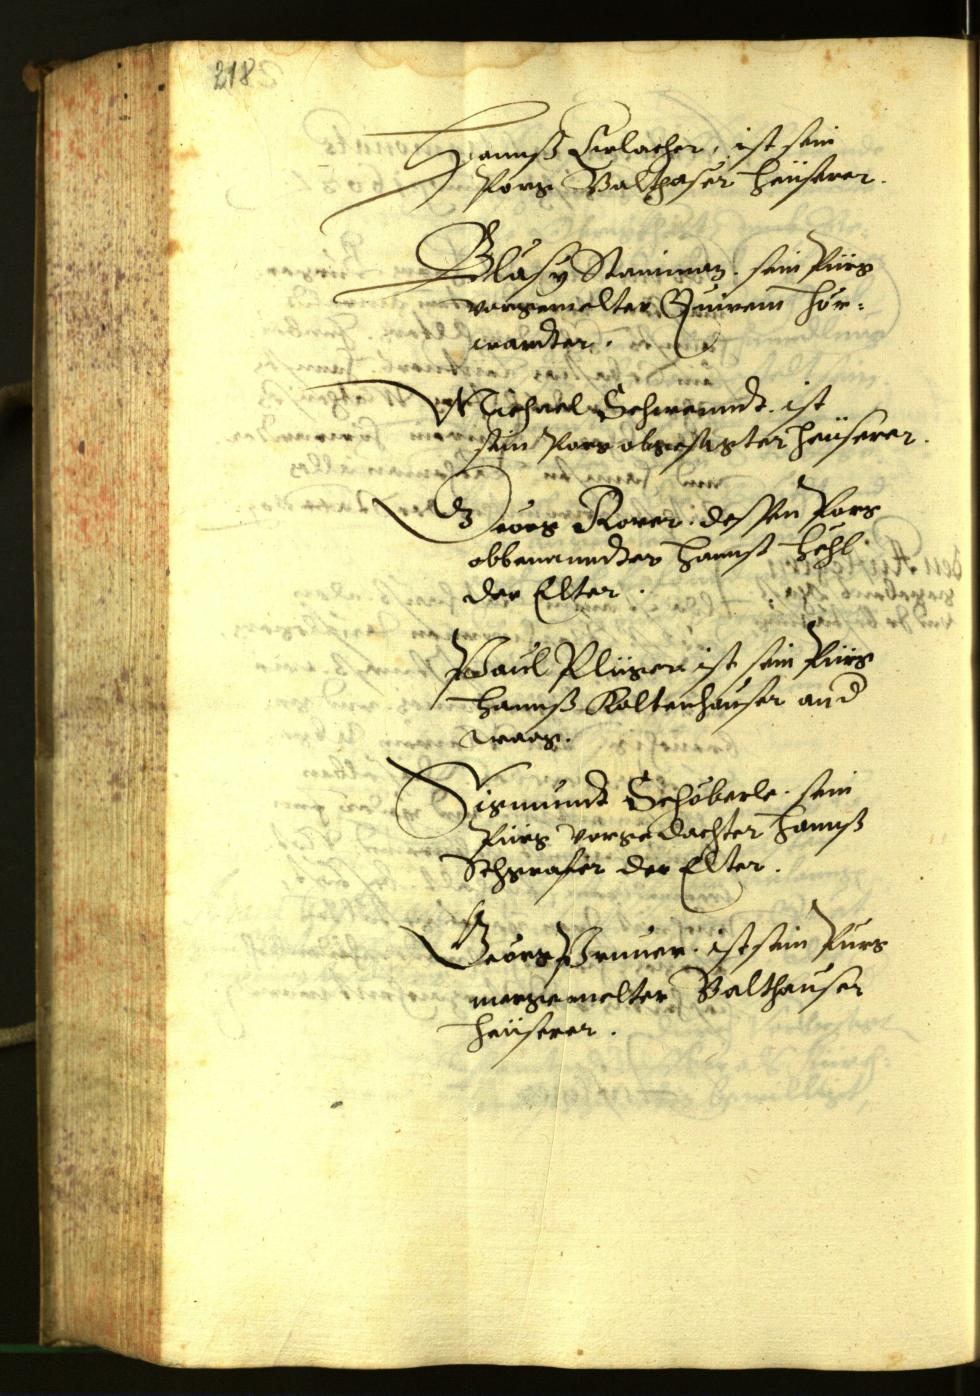 218
Hannß Erlacher, ist sein
Porg Balthaser Heüserer.
Blasy Stainman. sein Pürg
vorgemelter Quirein Hör=
wardter.
Michael Schwenndt. ist
sein Porg obgesagter Heüserer.
Georg Korer. dessen Porg
obbenanndter Hannß Hehl
der Elter.
Paul Plüger ist sein Pürg
Hannß Kaltenhauser and
waag.
Sigmundt Schöberle. sein
Pürg vorgedachter Hannß
Schgrafer der Elter.
Georg Pruner. ist sein Pürg
mergemelter Balthauser
Heüserer.